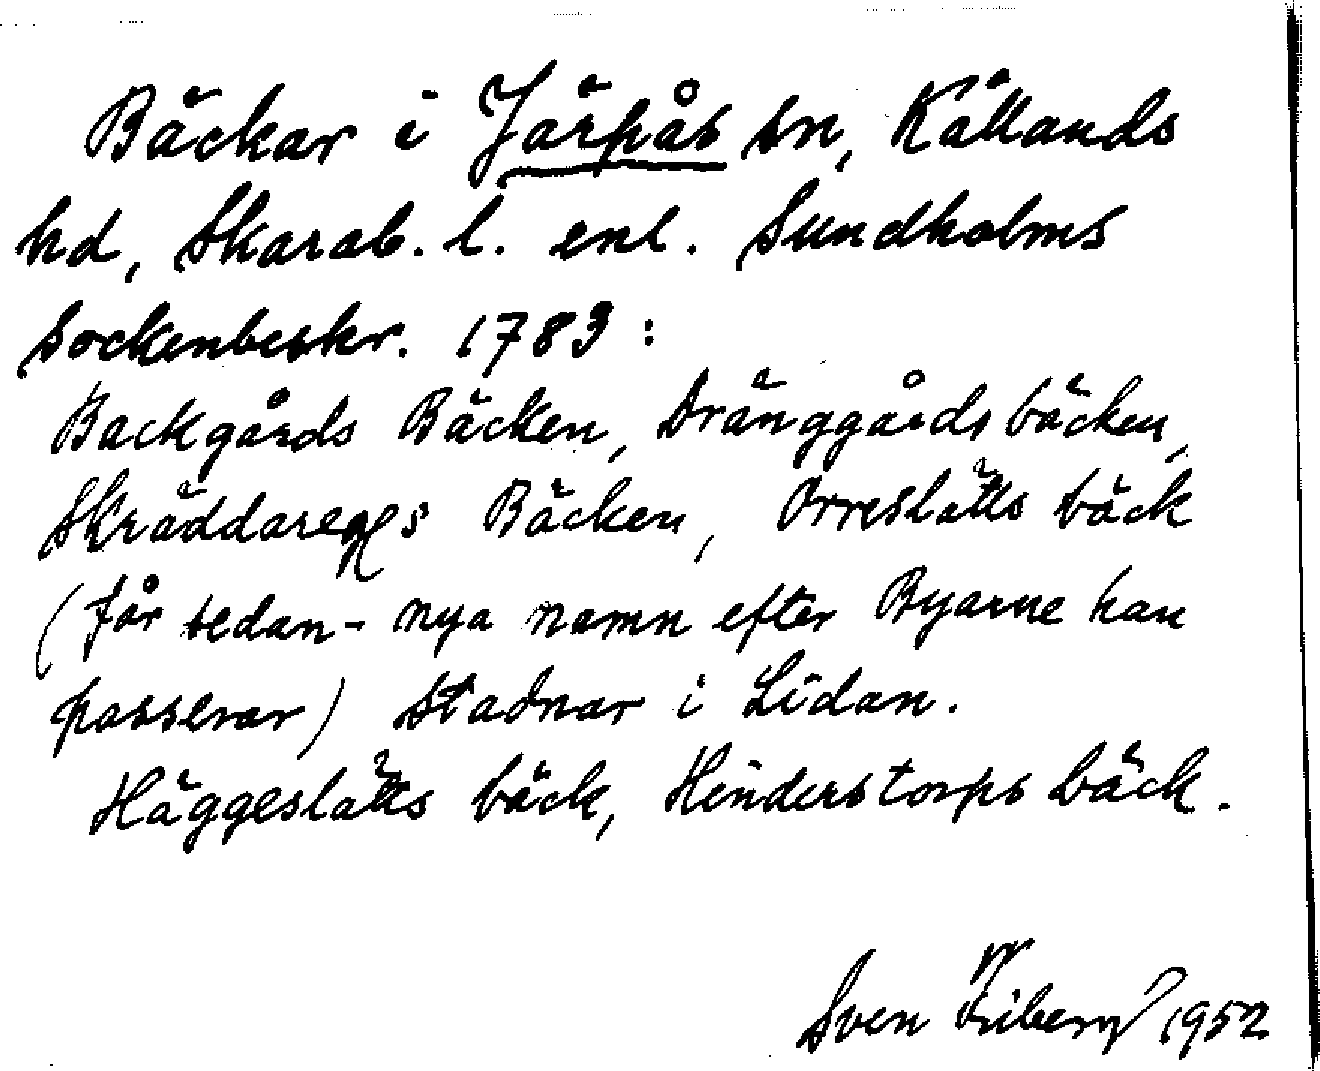 Bäckar i Järpås sn, Kållands
hd, Skarab. l. enl. Sundholms
sockenbeskr. 1783:
Backgårds Bäcken, Dränggårds bäcken,
Skräddares Bäcken, Orreslätts bäck
(får sedan - nya namn efter Byarne han
passerar) stadnar i Lidan.
Häggeslätts bäck, Hinderstorps bäck.
Sven Friberg 1952